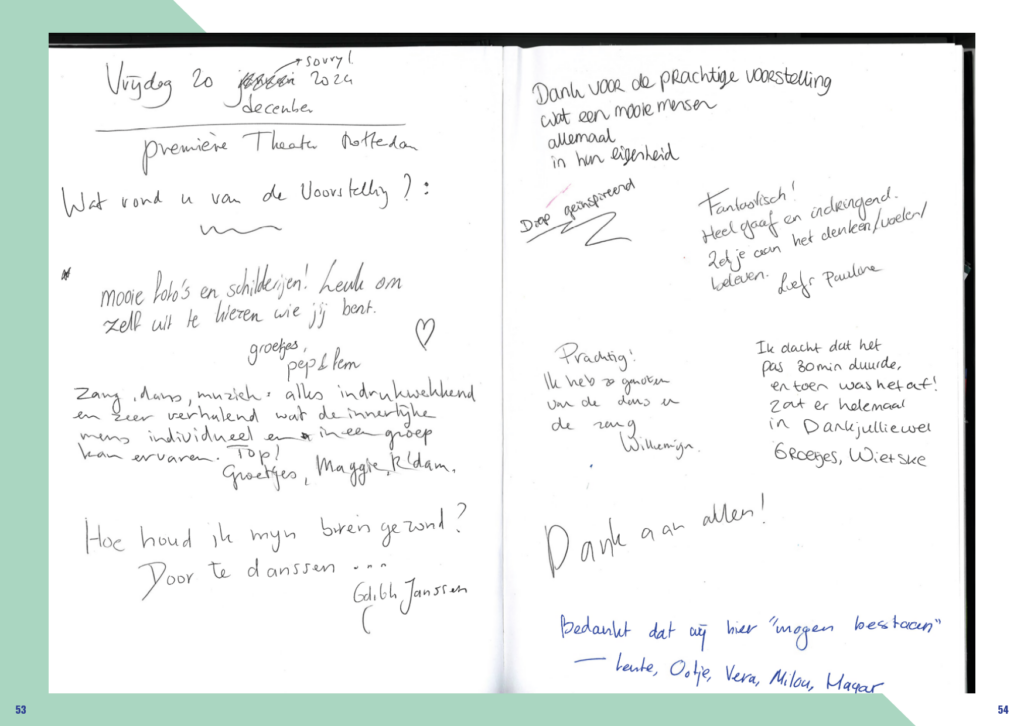 sorry!
Vrijdag 20 2024
december
première Theater Rotterdam
Wat vond u van de Voorstellig?:
mooie foto's en schilderijen! Leuk om
zelf uit te kiezen wie jij bent.
groetjes,
pep & Pem
Zang, dans, muziek, alles indrukwekkend
en zeer verhalend wat de innerlijke
mens individueel en in een groep
kan ervaren. Top!
Groetjes, Maggie, R'dam.
Hoe houd ik mijn brein gezond?
Door te danssen ...
Edith Janssen
53
Dank voor de prachtige voorstelling
wat een mooie mensen
allemaal
in hun eigenheid
Diep geïnspireerd
Fantastisch!
Heel gaaf en indringend.
Zet je aan het denken/voelen/
beleven.
Liefs Pauline
Prachtig!
Ik heb zo genoten
van de dans en
de zang
Willemijn.
Ik dacht dat het
pas 30 min duurde,
en toen was het af!
Zat er helemaal
in Dankjulliewel
Groetjes, Wietske
Dank aan allen!
Bedankt dat wij hier "mogen bestaan"
— Lente, Ootje, Vera, Milou,
54